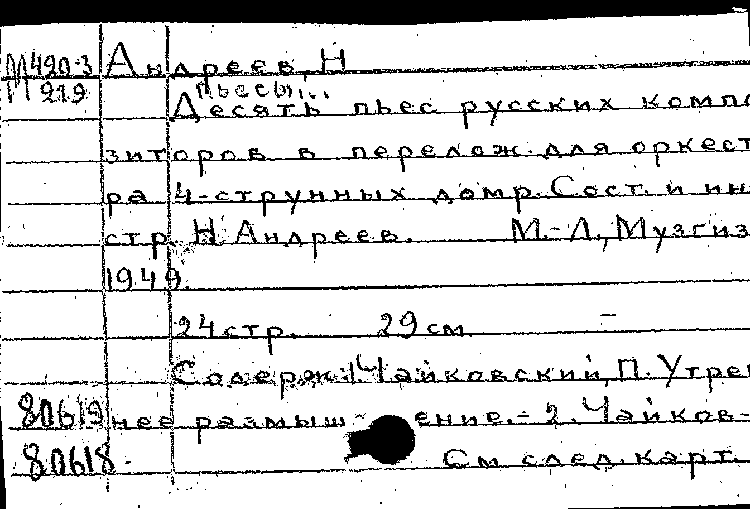 М420-3 Андреев, Н
М219 Пьесы...
Десять пьес русских компо
зиторов в перелож. для оркест
ра 4-струнных домр. Сост. и ин
стр. Н. Андреев. М.-Л., Музгиз
1949.
24 стр. 29 см
Содерж.: 1. Чайковский, П. Утрен
80619 нее размыш ение. - 2. Чайков-
80618. См. след. карт.